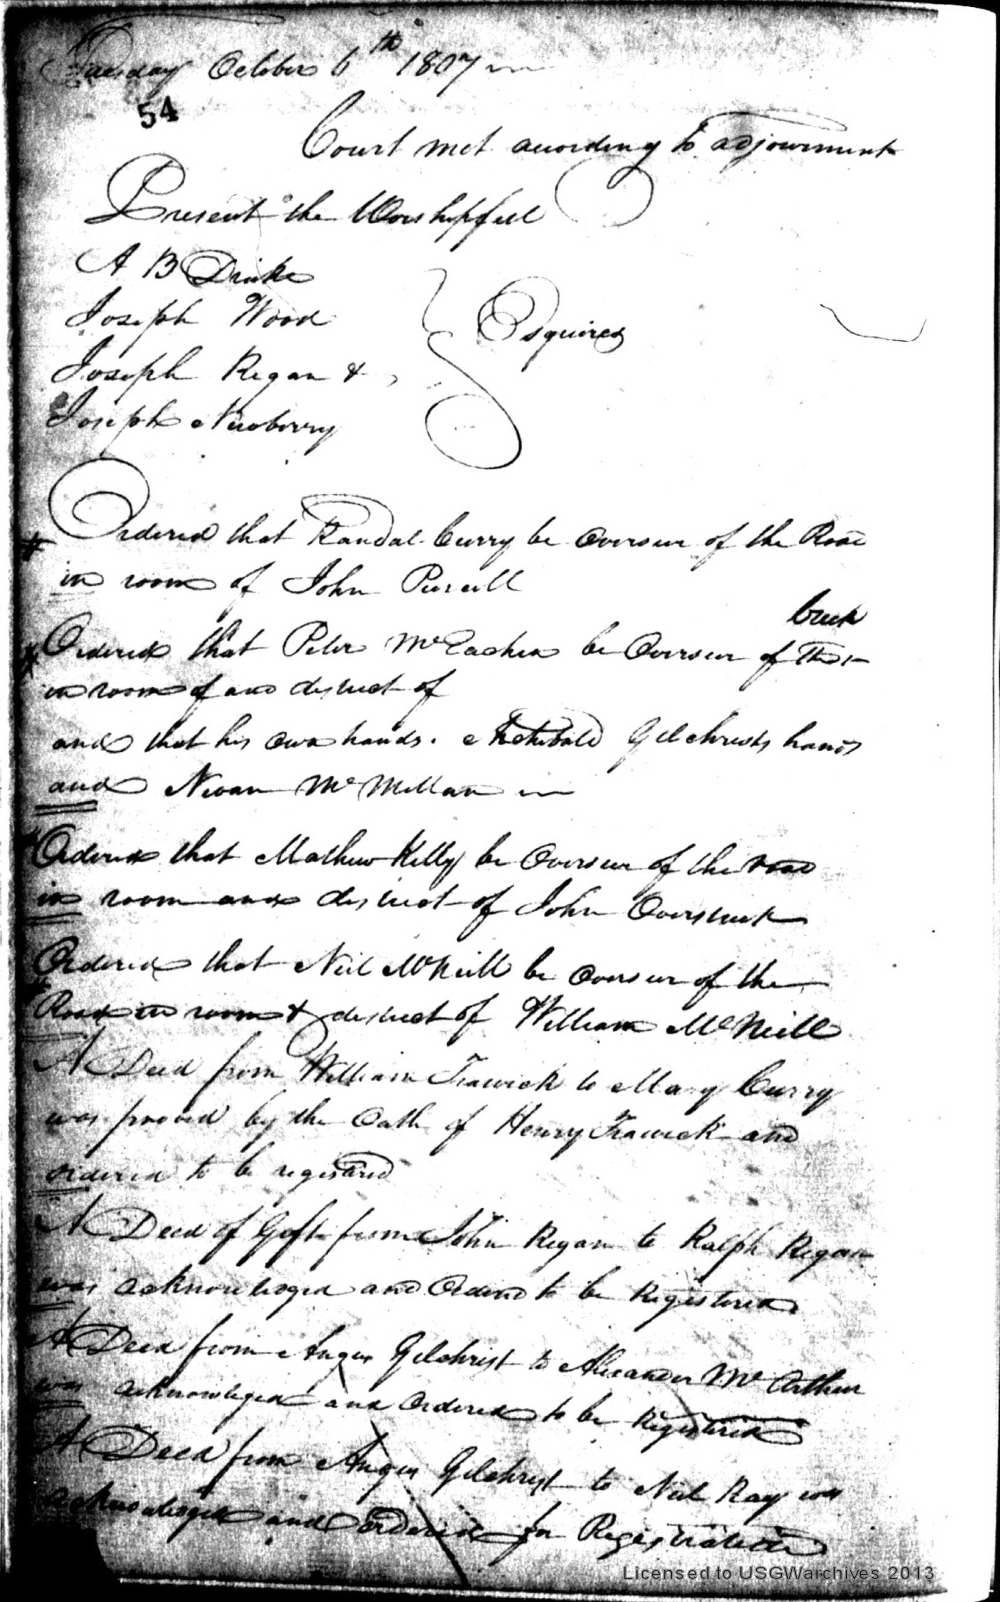 Tuesday October 6th 1807
54
Court met according to adjournment
Present the Worshipfull
A B Drake
Joseph Wood
Joseph Regan &
Joseph Newberry
Esquires
Ordered that Randal Curry be Overseer of the Road
in room of John Purcell
Creek
Ordered that Peter McEachen be Overseer of
in room of and district of
and that his own hands. Archibald Gilchrists hands
and McMillan
Ordered that Mathew Kelly be Overseer of the road
in room and district of John Overstreet
Ordered that Neil McNeill be Overseer of the
Road in room & district of William McNeill
A Deed from William Trawick to Mary Curry
was proved by the Oath of Henry Trawick and
ordered to be registered
A Deed of Gift from John Regan to Ralph Regan
was acknowledged and Ordered to be Registered
A Deed from Angus Gilchrist to Alexander McArthur
was acknowledged and Ordered to be Registered
A Deed from Angus Gilchrist to Neil Ray was
acknowledged and Ordered for Registration
Licensed to USGWarchives 2013